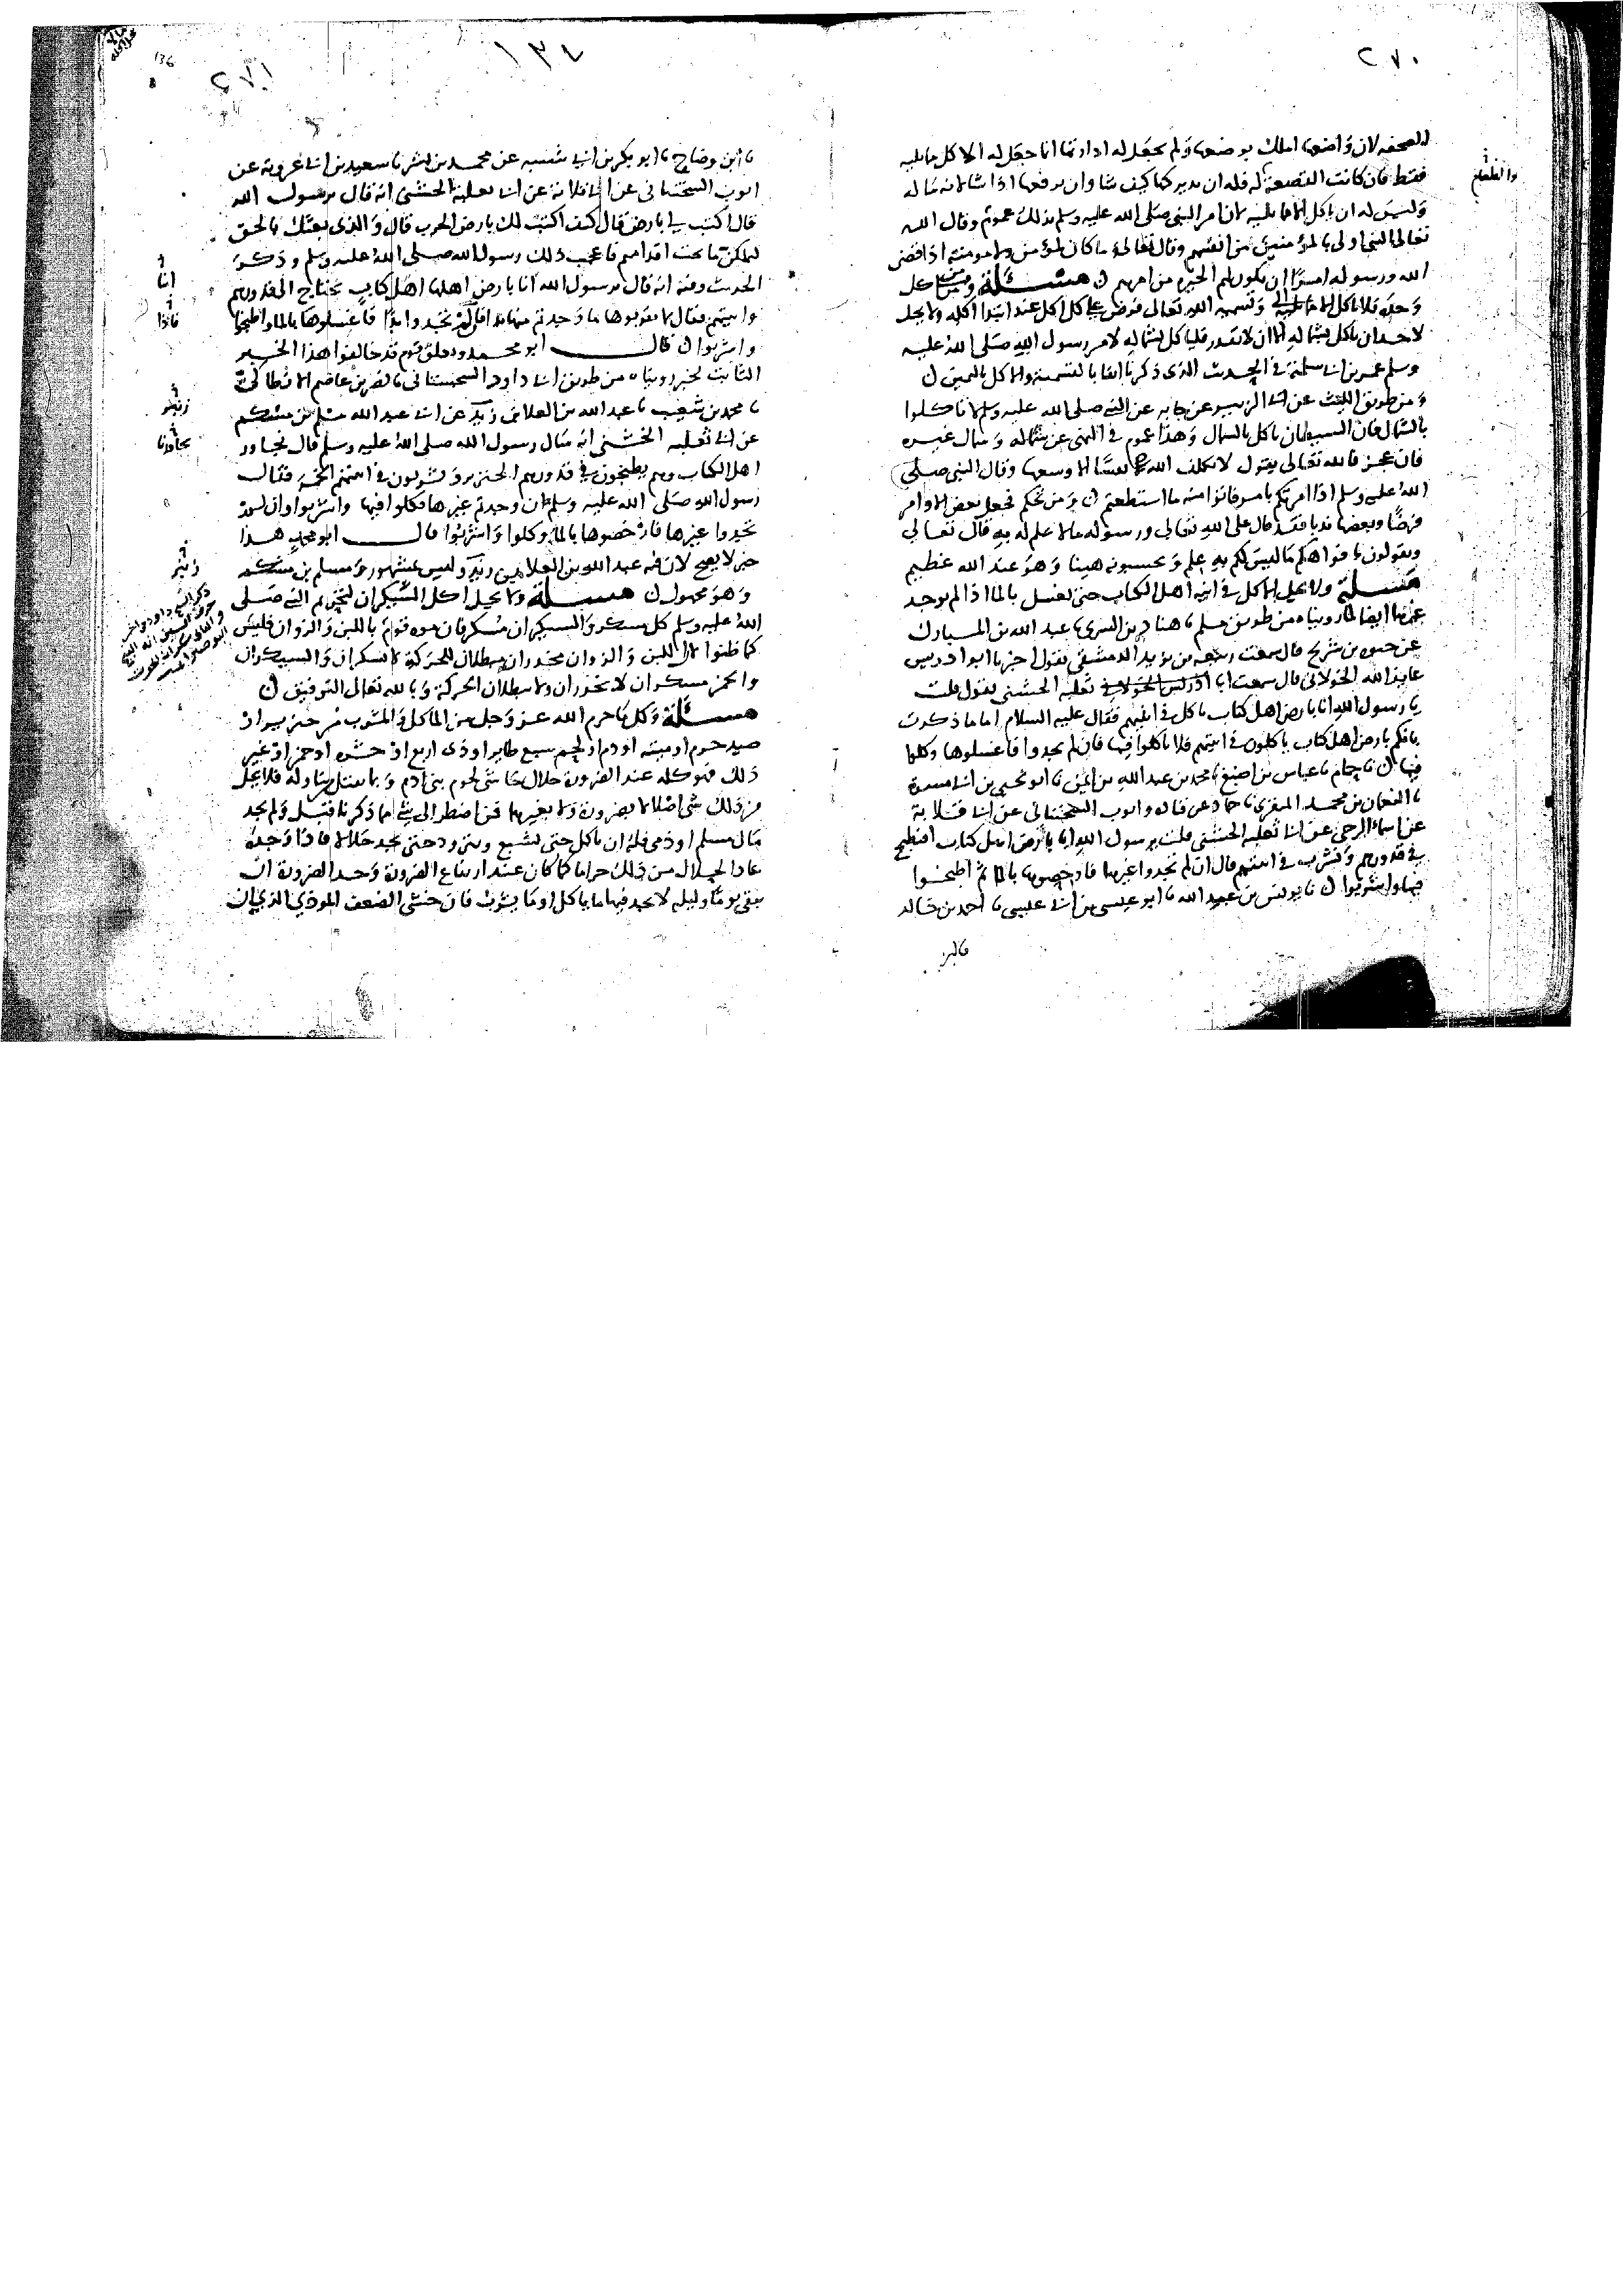 ٢٧٠
للصحفه لان واضعها املك بوضعها ولم يجعل له ادارتها انما جعل له الاكل مما يليه
والطعام
فقط فان كانت القصعة له فله ان يديرها كيف شا وان يرفعها اذا شا لانه ماله
وليس له ان ياكل الا مما يليه لان امر النبي صلى الله عليه وسلم بذلك عموم وقال الله
تعالى النبي اولى بالمؤمنين من انفسهم وقال تعالى وما كان لمؤمن ولا مومنة اذا قضى
الله ورسوله امرا ان يكون لهم الخيره من امرهم ن مسئلة ومن اكل
وحده فلا ياكل الا مما يليه وتسميه الله تعالى فرض على كل اكل عند ابتدا اكله ولا يحل
لاحد ان ياكل بشماله الا ان لا يقدر فلياكل بشماله لامر رسول الله صلى الله عليه
وسلم عمر بن ابي سلمة في الحديث الذي ذكرنا انفا بالتسمية والاكل باليمين ن
ومن طريق الليث عن ابي الزبير عن جابر عن النبي صلى الله عليه وسلم لا تاكلوا
بالشمال فان الشيطان ياكل بالشمال وهذا عموم في النهي عن شماله وشمال غيره
فان عجز فالله تعالى يقول لا يكلف الله نفسا الا وسعها وقال النبي صلى
الله عليه وسلم اذا امرتكم بامر فاتوا منه ما استطعتم ن ومن تحكم فجعل بعض الاوامر
فرضا وبعضها ندبا فقد قال على الله تعالى ورسوله مالا علم له به قال تعالى
وتقولون بافواهكم ما ليس لكم به علم وتحسبونه هينا وهو عند الله عظيم
مسئلة ولا يحل الاكل في انية اهل الكتاب حتى تغسل بالما اذا لم يوجد
غيرها ايضا لما رويناه من طريق مسلم نا هناد بن السري نا عبد الله بن المبارك
عن حيوه بن شريح قال سمعت ربيعه بن يزيد الدمشقي يقول اخبرنا ابو ادريس
عايذ الله الخولاني قال سمعت ابا ثعلبه الخشني يقول قلت
يا رسول الله انا بارض اهل كتاب ناكل في انيتهم فقال عليه السلام اما ما ذكرت
بانكم بارض اهل كتاب ياكلون في انيتهم فلا تاكلوا فيها فان لم تجدوا فاغسلوها وكلوا
فيها ن نا حمام نا عباس بن اصبغ نا محمد بن عبد الله بن ايمن نا ابو يحيى بن ابي مسرة
نا النعمان بن محمد المقري نا حماد عن قتاده وايوب السختياني عن ابي قلابة
عن اسماء الرحبي عن ابي ثعلبه الخشني قلت يرسول الله انا بارض اهل كتاب افنطبخ
في قدورهم ونشرب في انيتهم قال ان لم تجدوا غيرها فارحضوها بالما ثم اطبخوا
فيها واشربوا ن نا يونس بن عبد الله نا ابو عيسى بن ابي عيسى نا احمد بن خالد
نا ابن
١٣٤
٢٧١
136
نا ابن وضاح نا ابو بكر بن ابي شيبه عن محمد بن بشر نا سعيد بن ابي عروبة عن
ايوب السختياني عن ابي قلابة عن ابي ثعلبة الخشني انه قال يرسول الله
قال اكتب لي بارض قال كيف اكتب لك بارض الحرب قال والذي بعثك بالحق
ليملكن ما تحت اقدامهم فاعجب ذلك رسول الله صلى الله عليه وسلم وذكر
انا
الحديث وفيه انه قال يرسول الله انا بارض اهلها اهل كتاب نحتاج الى قدورهم
فاذا
وانيتهم فقال لا تقربوها ما وجدتم منها بدا فان لم تجدوا بدا فاغسلوها بالما واطبخوا
واشربوا ن قال ابو محمد وتعلق قوم قد خالفوا هذا الخبر
الثابت لخبر رويناه من طريق ابي داود السجستاني نا نصر بن عاصم الانطاكي
زبر
نا محمد بن شعيب نا عبد الله بن العلا بن زبر عن ابي عبد الله مسلم بن مشكم
نجاورنا
عن ابي ثعلبه الخشني انه سال رسول الله صلى الله عليه وسلم قال نجاور
اهل الكتاب وهم يطبخون في قدورهم الخنزير ويشربون في انيتهم الخمر فقال
رسول الله صلى الله عليه وسلم ان وجدتم غيرها فكلوا فيها واشربوا وان لم
تجدوا غيرها فارحضوها بالما وكلوا واشربوا قال ابو محمد هذا
زبر
خبر لا يصح لان فيه عبد الله بن العلا بن زبر وليس بمشهور ومسلم بن مشكم
وهو مجهول ن مسئلة ولا يحل اكل السيكران لتحريم النبي صلى
الله عليه وسلم كل مسكر والسيكران مسكر فان موه قوم باللبن والزوان فليس
كما ظنوا لان اللبن والزوان مخدران مبطلان للحركة لا يسكران والسيكران
والخمر مسكران لا يخدران ولا يبطلان الحركة وبالله تعالى التوفيق ن
مسئلة وكل ما حرم الله عز وجل من الماكل والمشرب من خنزير او
صيد حرام او ميته او دم او لحم سبع طاير او ذي اربع او حشره او خمر او غير
ذلك فهو كله عند الضرورة حلال حاشى لحوم بني ادم وما يقتل من تناوله فلا يحل
من ذلك شي اصلا لا بضرورة ولا بغيرها فمن اضطر الى شي مما ذكرنا قبل ولم يجد
مال مسلم او ذمي فله ان ياكل حتى يشبع ويتزود حتى يجد حلالا فاذا وجده
عاد الحلال من ذلك حراما كما كان عند ارتفاع الضرورة وحد الضرورة ان
يبقى يوما وليله لا يجد فيها ما ياكل او ما يشرب فان خشي الضعف الموذي الذي ان